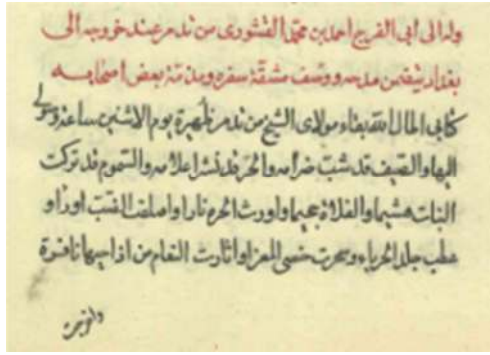 وله الى ابى الفرج احمد بن محمد القشورى من تدمر عند خروجه الى
بغداد يتضمن مدحه ووصف مشقة سفره ومذمة بعض اصحابه
كتابى اطال الله بقاء مولاى الشيخ من تدمر ظهيرة يوم الاثنين ساعة وصولى
اليها والصيف قد شب ضرامه والحر قد نشر اعلامه والسموم قد تركت
النبات هشيما والفلاة جحيما واورث الحرة نارا و الضب اوارا و
جلد الحرباء وسحرت حتى المعزا واثارت النعام من اداحيها نافرة